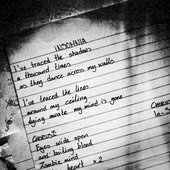 INSOMNIA
I've traced the shadows
a thousand times
as they dance across my walls
I've traced the lines
around my ceiling
lying awake my mind is gone
CHORUS:
Eyes wide open
and boiling blood
Zombie mind
heart x 2